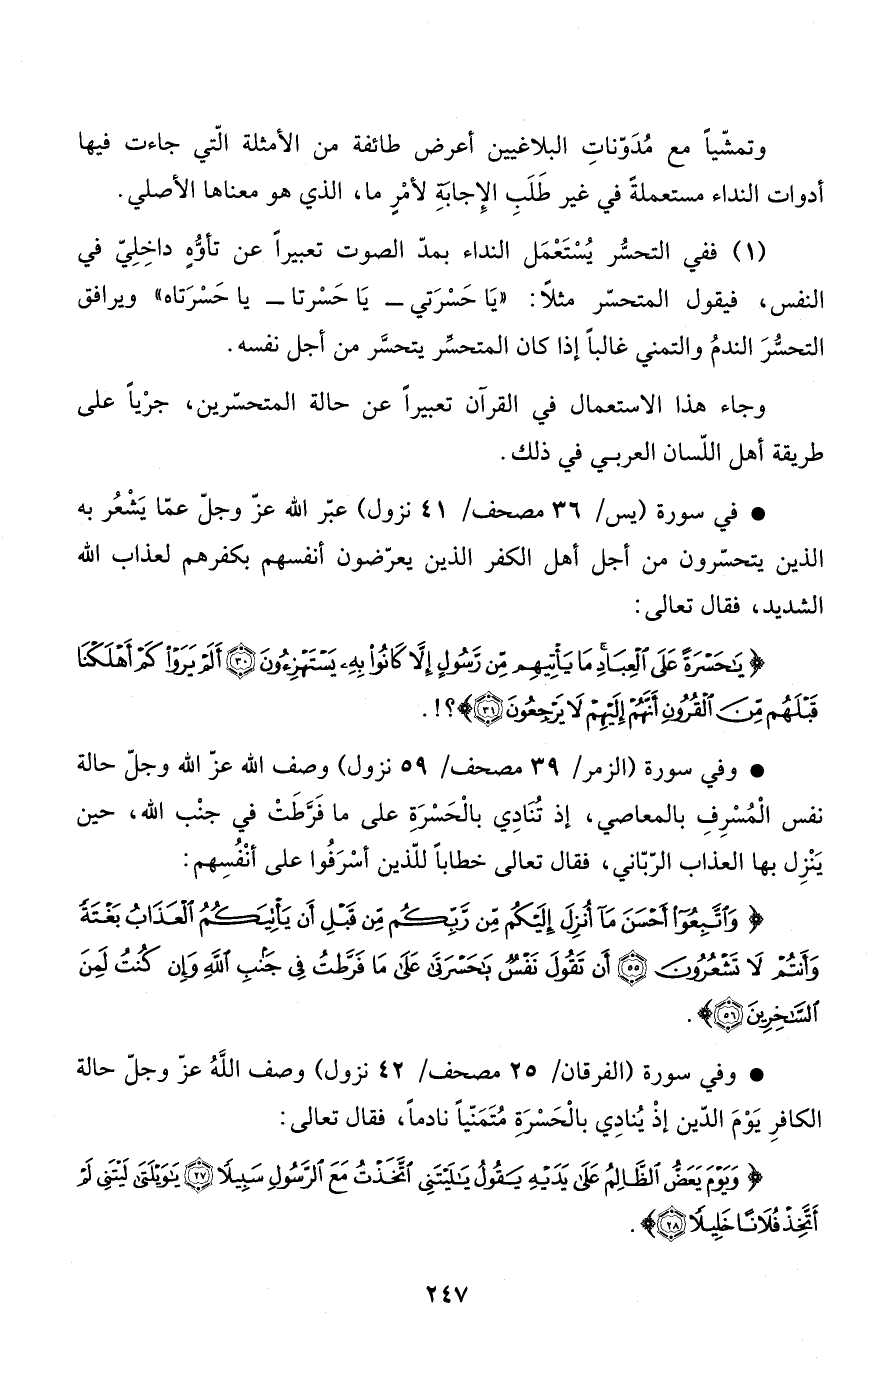 وتمشّياً مع مُدَوّناتِ البلاغيين أعرض طائفة من الأمثلة الّتي جاءت فيها
أدوات النداء مستعملةً في غير طَلَبِ الإِجابَةِ لأمْرٍ ما، الذي هو معناها الأصلي.
(١) ففي التحسُّر يُسْتَعْمَل النداء بمدّ الصوت تعبيراً عن تأوُّهٍ داخِلِيّ في
النفس، فيقول المتحسّر مثلاً: «يَا حَسْرَتي – يَا حَسْرتا – يا حَسْرَتاه» ويرافق
التحسُّرَ الندمُ والتمني غالباً إذا كان المتحسِّر يتحسَّر من أجل نفسه.
وجاء هذا الاستعمال في القرآن تعبيراً عن حالة المتحسّرين، جرْياً على
طريقة أهل اللّسان العربـي في ذلك.
● في سورة (يس/ ٣٦ مصحف/ ٤١ نزول) عبّر الله عزّ وجلّ عمّا يَشْعُر به
الذين يتحسّرون من أجل أهل الكفر الذين يعرّضون أنفسهم بكفرهم لعذاب الله
الشديد، فقال تعالى:
﴿ يَٰحَسْرَةً عَلَى ٱلْعِبَادِۚ مَا يَأْتِيهِم مِّن رَّسُولٍ إِلَّا كَانُوا۟ بِهِۦ يَسْتَهْزِءُونَ ٣٠ أَلَمْ يَرَوْا۟ كَمْ أَهْلَكْنَا
قَبْلَهُم مِّنَ ٱلْقُرُونِ أَنَّهُمْ إِلَيْهِمْ لَا يَرْجِعُونَ ٣١﴾؟!.
● وفي سورة (الزمر/ ٣٩ مصحف/ ٥٩ نزول) وصف الله عزّ الله وجلّ حالة
نفس الْمُسْرِفِ بالمعاصي، إذ تُنَادِي بالْحَسْرَةِ على ما فَرَّطَتْ في جنْب الله، حين
يَنْزِل بها العذاب الرّبّاني، فقال تعالى خطاباً للّذين أسْرَفُوا على أنْفُسِهم:
﴿ وَٱتَّبِعُوٓا۟ أَحْسَنَ مَآ أُنزِلَ إِلَيْكُم مِّن رَّبِّكُم مِّن قَبْلِ أَن يَأْتِيَكُمُ ٱلْعَذَابُ بَغْتَةً
وَأَنتُمْ لَا تَشْعُرُونَ ٥٥ أَن تَقُولَ نَفْسٌ يَٰحَسْرَتَىٰ عَلَىٰ مَا فَرَّطتُ فِى جَنۢبِ ٱللَّهِ وَإِن كُنتُ لَمِنَ
ٱلسَّٰخِرِينَ ٥٦﴾.
● وفي سورة (الفرقان/ ٢٥ مصحف/ ٤٢ نزول) وصف اللَّهُ عزّ وجلّ حالة
الكافرِ يَوْمَ الدّين إذْ يُنادِي بالْحَسْرَةِ مُتَمَنّياً نادماً، فقال تعالى:
﴿ وَيَوْمَ يَعَضُّ ٱلظَّالِمُ عَلَىٰ يَدَيْهِ يَقُولُ يَٰلَيْتَنِى ٱتَّخَذْتُ مَعَ ٱلرَّسُولِ سَبِيلًا ٢٧ يَٰوَيْلَتَىٰ لَيْتَنِى لَمْ
أَتَّخِذْ فُلَانًا خَلِيلًا ٢٨﴾.
٢٤٧